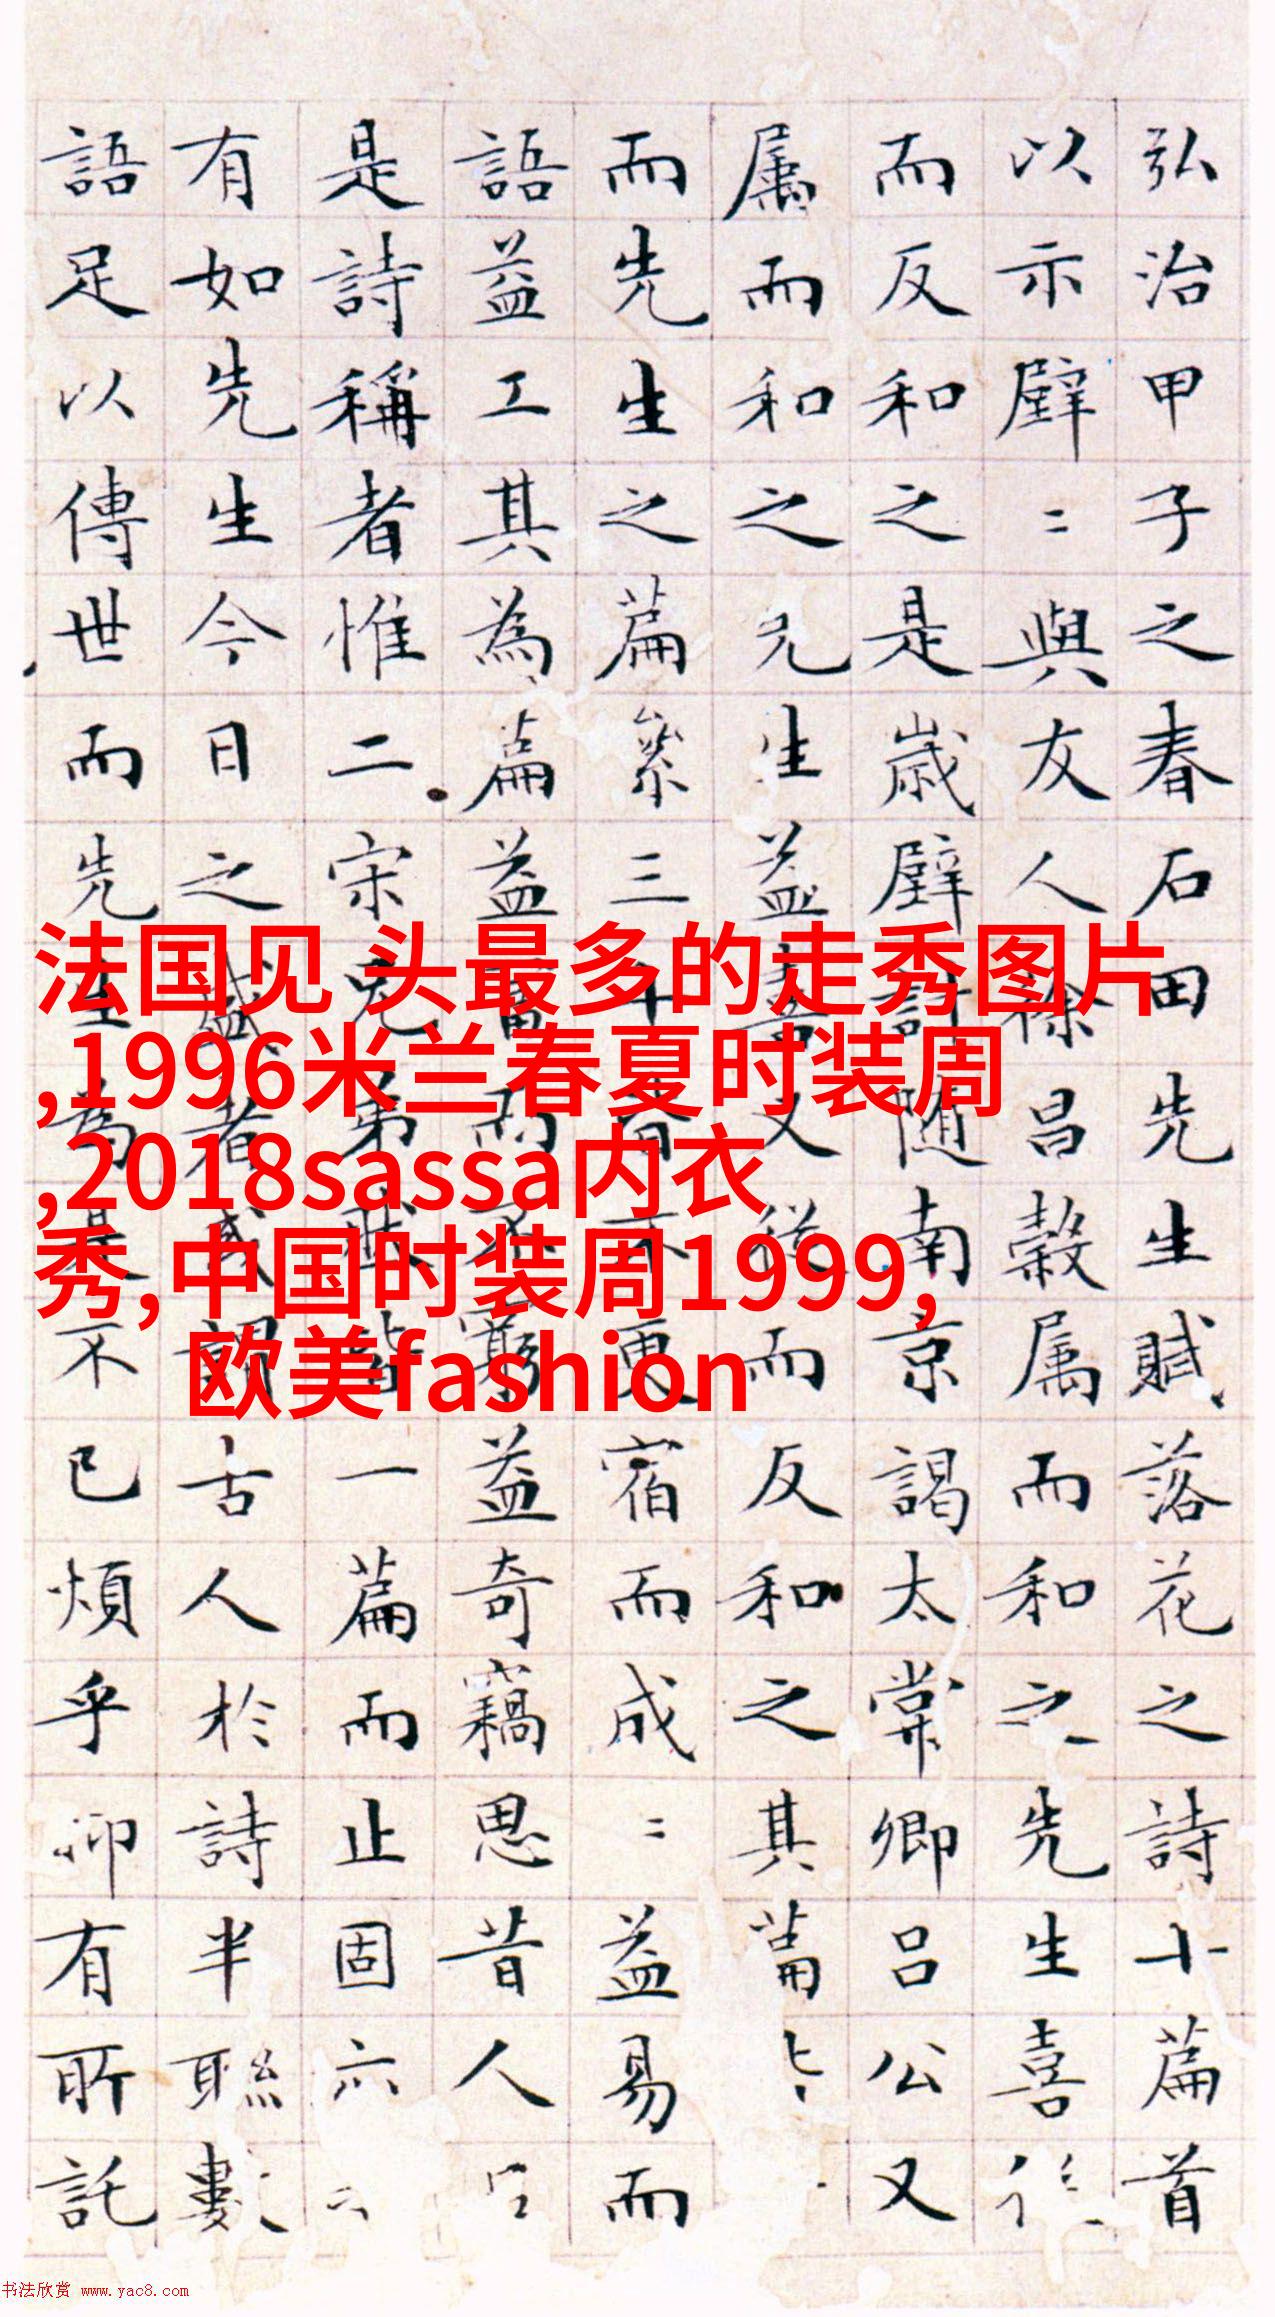 弘治甲子之春石田先生賦落花之詩十篇首
以示璧〻與友人徐昌榖属而和之先生喜
而反和之是歲璧計随南京謁太常卿吕公又
属而和之先生益喜又從而反和之其篇
而先生之篇纍三十皆不更宿而成〻益易而
語益工其為篇益富而不窮益奇竊思昔人
是詩稱者惟二宋兄弟然皆一篇而止固六
有如先生今日之盛者或謂古人於詩半聯數
語足以傳世而先生為是不已煩乎抑有所託
法国见 头最多的走秀图片
,1996米兰春夏时装周
,2018sassa内衣
秀,中国时装周1999,
欧美fashion
书法欣赏 www.yac8.com